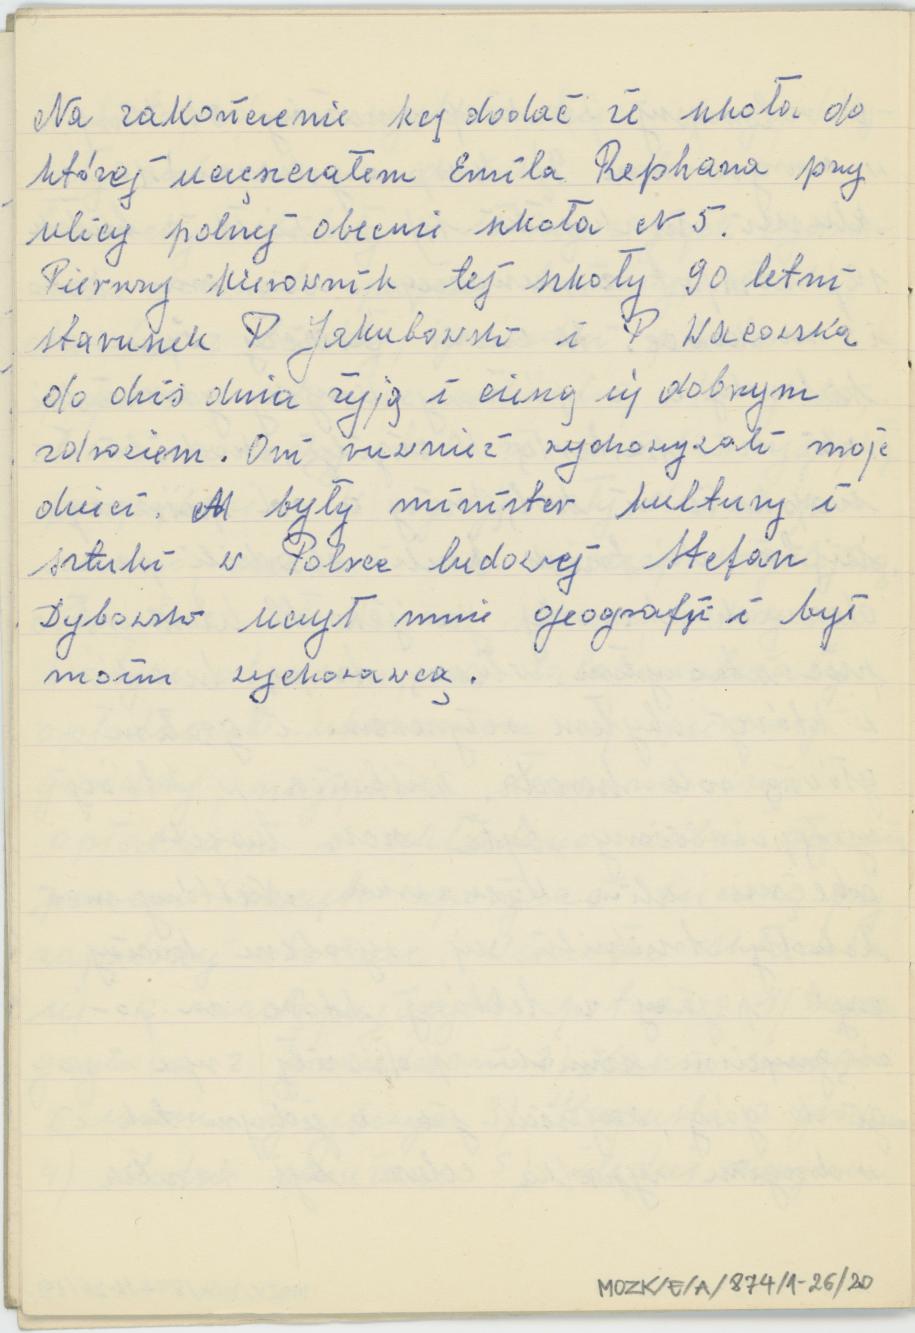 Na zakończenie hcę dodać że szkoła do
której uczęszczałem Emila Rephana przy
ulicy polnej obecnie szkoła N 5.
Pierwszy kierownik tej szkoły 90 letni
staruszek P Jakubowski i P Wacowska
do dziś dnia żyją i cieszą się dobrym
zdrowiem. Oni ruwnież wychowywali moje
dzieci. A były minister kultury i
sztuki w Polsce ludowej Stefan
Dybowski uczył mnie geografji i był
moim wychowawcą.
MOZK/E/A/874/1-26/20